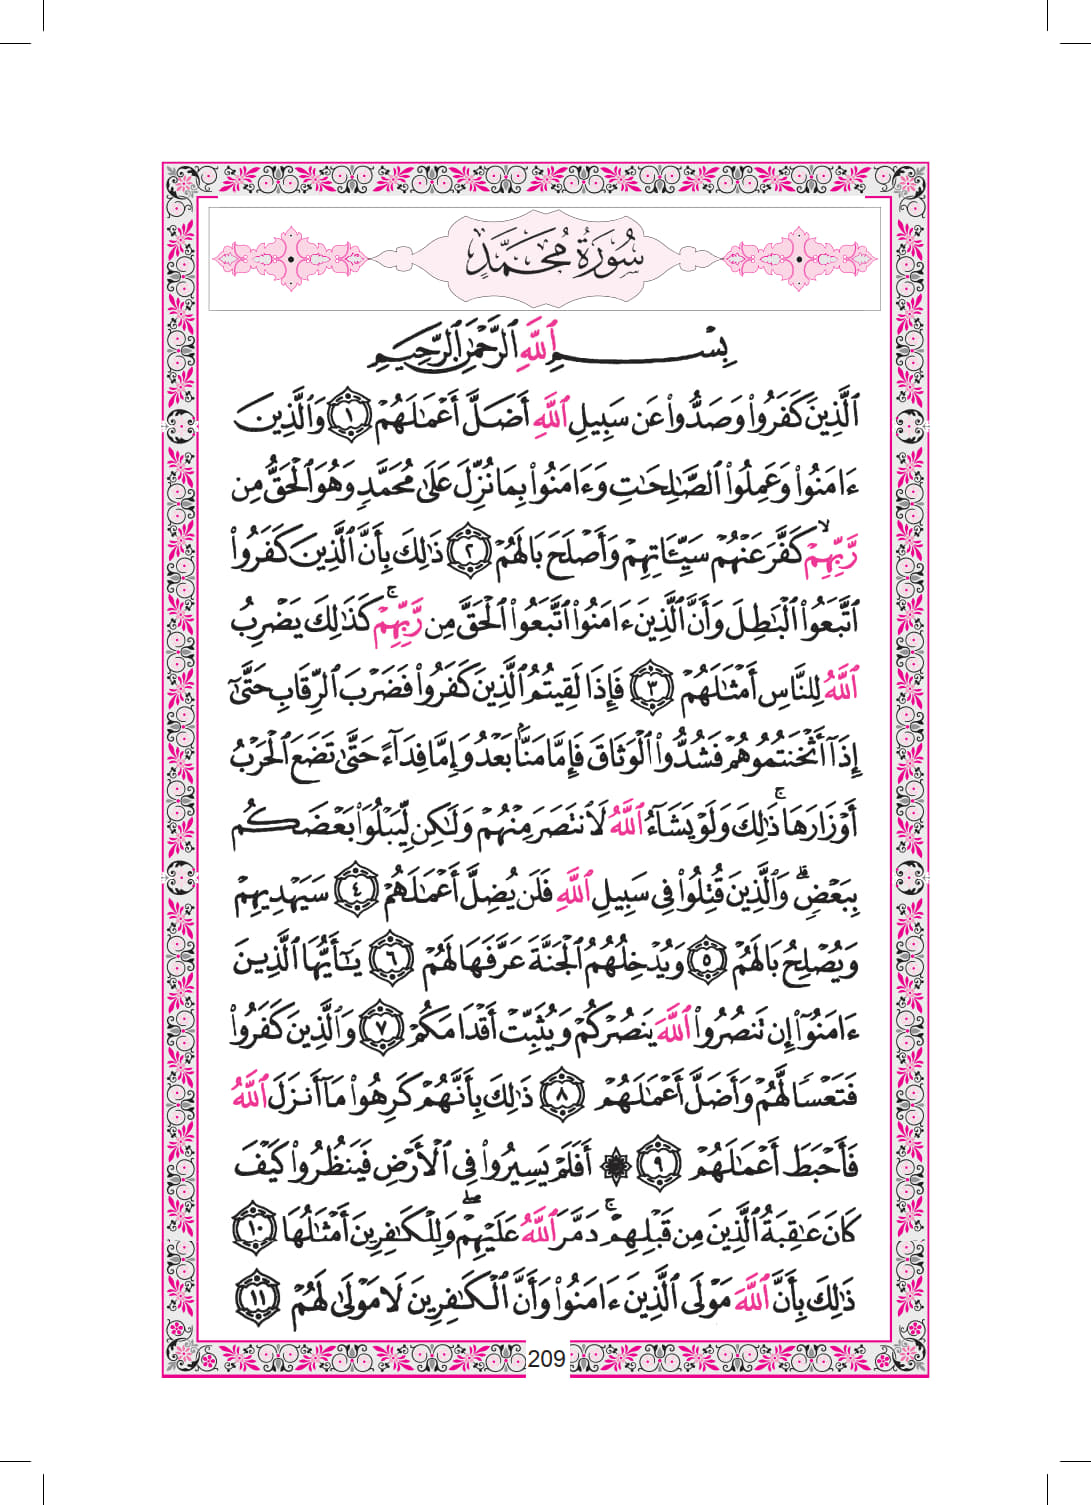 سُورَةُ مُحَمَّدٍ
بِسْمِ ٱللَّهِ ٱلرَّحْمَٰنِ ٱلرَّحِيمِ
ٱلَّذِينَ كَفَرُوا۟ وَصَدُّوا۟ عَن سَبِيلِ ٱللَّهِ أَضَلَّ أَعْمَٰلَهُمْ ١ وَٱلَّذِينَ
ءَامَنُوا۟ وَعَمِلُوا۟ ٱلصَّٰلِحَٰتِ وَءَامَنُوا۟ بِمَا نُزِّلَ عَلَىٰ مُحَمَّدٍ وَهُوَ ٱلْحَقُّ مِن
رَّبِّهِمْ ۙ كَفَّرَ عَنْهُمْ سَيِّـَٔاتِهِمْ وَأَصْلَحَ بَالَهُمْ ٢ ذَٰلِكَ بِأَنَّ ٱلَّذِينَ كَفَرُوا۟
ٱتَّبَعُوا۟ ٱلْبَٰطِلَ وَأَنَّ ٱلَّذِينَ ءَامَنُوا۟ ٱتَّبَعُوا۟ ٱلْحَقَّ مِن رَّبِّهِمْ ۚ كَذَٰلِكَ يَضْرِبُ
ٱللَّهُ لِلنَّاسِ أَمْثَٰلَهُمْ ٣ فَإِذَا لَقِيتُمُ ٱلَّذِينَ كَفَرُوا۟ فَضَرْبَ ٱلرِّقَابِ حَتَّىٰٓ
إِذَآ أَثْخَنتُمُوهُمْ فَشُدُّوا۟ ٱلْوَثَاقَ فَإِمَّا مَنًّۢا بَعْدُ وَإِمَّا فِدَآءً حَتَّىٰ تَضَعَ ٱلْحَرْبُ
أَوْزَارَهَا ۚ ذَٰلِكَ وَلَوْ يَشَآءُ ٱللَّهُ لَٱنتَصَرَ مِنْهُمْ وَلَٰكِن لِّيَبْلُوَا۟ بَعْضَكُم
بِبَعْضٍ ۗ وَٱلَّذِينَ قُتِلُوا۟ فِى سَبِيلِ ٱللَّهِ فَلَن يُضِلَّ أَعْمَٰلَهُمْ ٤ سَيَهْدِيهِمْ
وَيُصْلِحُ بَالَهُمْ ٥ وَيُدْخِلُهُمُ ٱلْجَنَّةَ عَرَّفَهَا لَهُمْ ٦ يَٰٓأَيُّهَا ٱلَّذِينَ
ءَامَنُوٓا۟ إِن تَنصُرُوا۟ ٱللَّهَ يَنصُرْكُمْ وَيُثَبِّتْ أَقْدَامَكُمْ ٧ وَٱلَّذِينَ كَفَرُوا۟
فَتَعْسًا لَّهُمْ وَأَضَلَّ أَعْمَٰلَهُمْ ٨ ذَٰلِكَ بِأَنَّهُمْ كَرِهُوا۟ مَآ أَنزَلَ ٱللَّهُ
فَأَحْبَطَ أَعْمَٰلَهُمْ ٩ ۞ أَفَلَمْ يَسِيرُوا۟ فِى ٱلْأَرْضِ فَيَنظُرُوا۟ كَيْفَ
كَانَ عَٰقِبَةُ ٱلَّذِينَ مِن قَبْلِهِمْ ۚ دَمَّرَ ٱللَّهُ عَلَيْهِمْ ۖ وَلِلْكَٰفِرِينَ أَمْثَٰلُهَا ١٠
ذَٰلِكَ بِأَنَّ ٱللَّهَ مَوْلَى ٱلَّذِينَ ءَامَنُوا۟ وَأَنَّ ٱلْكَٰفِرِينَ لَا مَوْلَىٰ لَهُمْ ١١
209